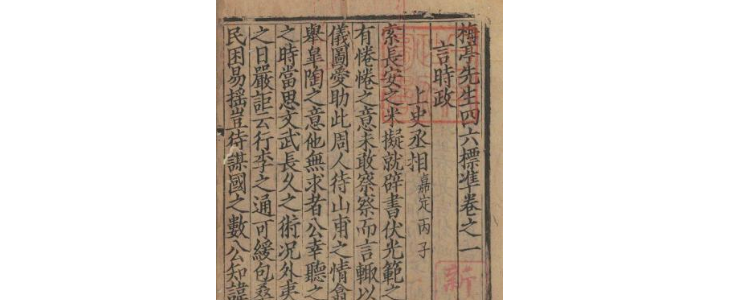 梅亭先生四六標準卷之一
言時政
上史丞相嘉定丙子
索長安之米擬就辟書伏光範之
有惓惓之意未敢察察而言輒以
儀圖愛助此周人待山甫之情翕
舉臯陶之意他無求者公幸聽之
之時當思文武長久之術况外夷
之日嚴詎云行李之通可緩包桑
民困易揺豈待謀國之數公知諱
新